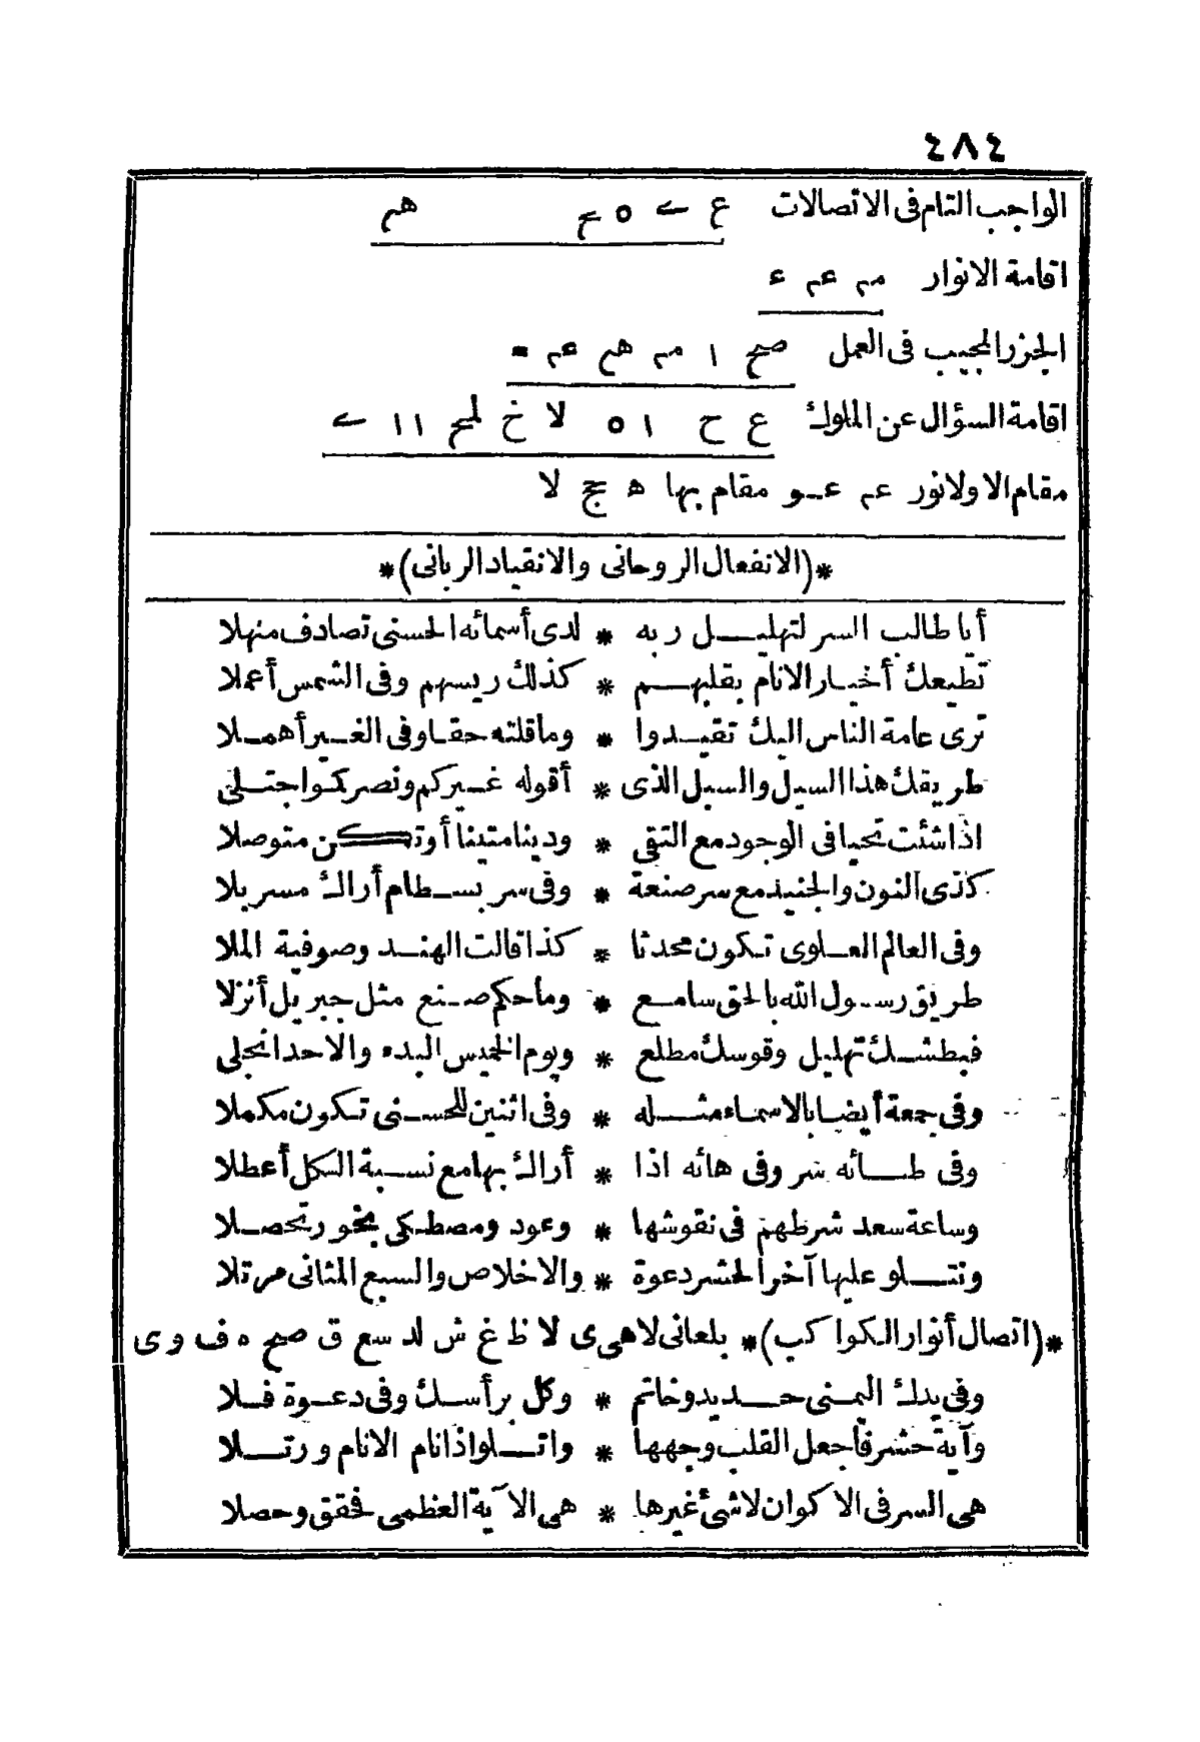 ٤٨٤
الواجب التام فى الاتصالات ع ے ٥ ع هم
اقامة الانوار م عم ء
الجزر المجيب فى العمل صح ١ م هم عم
اقامة السؤال عن الملوك ع ح ١ ٥ لا خ لمح ١١ ے
مقام الاولانور عم عـو مقام بها ه ج لا
*(الانفعال الروحانى والانقياد الربانى)*
أيا طالب السر لتهليل ربه * لدى أسمائه الحسنى تصادف منهلا
تطيعك أخيار الانام بقلبهم * كذلك ريسهم وفى الشمس أعملا
ترى عامة الناس اليك تقيدوا * وما قلته حقا وفى الغير أهملا
طريقك هذا السيل والسبل الذى * أقوله غيركم ونصركموا جتلى
اذا شئت تحيا فى الوجود مع التقى * ودينا متينا أو تكن متوصلا
كذى النون والجنيد مع سر صنعة * وفى سر بسطام أراك مسربلا
وفى العالم العلوى تكون محدثا * كذا قالت الهند وصوفية الملا
طريق رسول الله بالحق ساطع * وما حكم صنع مثل جبريل أنزلا
فبطشك تهليل وقوسك مطلع * ويوم الخميس البدء والاحد انجلى
وفى جمعة أيضا بالاسماء مثله * وفى اثنين للحسنى تكون مكملا
وفى طائه سر وفى هائه اذا * أراك بها مع نسبة الكل أعطلا
وساعة سعد شرطهم فى نقوشها * وعود ومصطكى بخور تحصلا
ونتلو عليها آخر الحشر دعوة * والاخلاص والسبع المثانى مرتلا
*(اتصال أنوار الكواكب)* بلعانى لا هى ى لا ظ غ ش لد سع ق صح ه ف و ى
وفى يدك اليمنى حديد وخاتم * وكل برأسك وفى دعوة فلا
وآية حشر فاجعل القلب وجهها * واتلو اذا نام الانام ورتلا
هى السر فى الاكوان لا شئ غيرها * هى الآية العظمى فحقق وحصلا